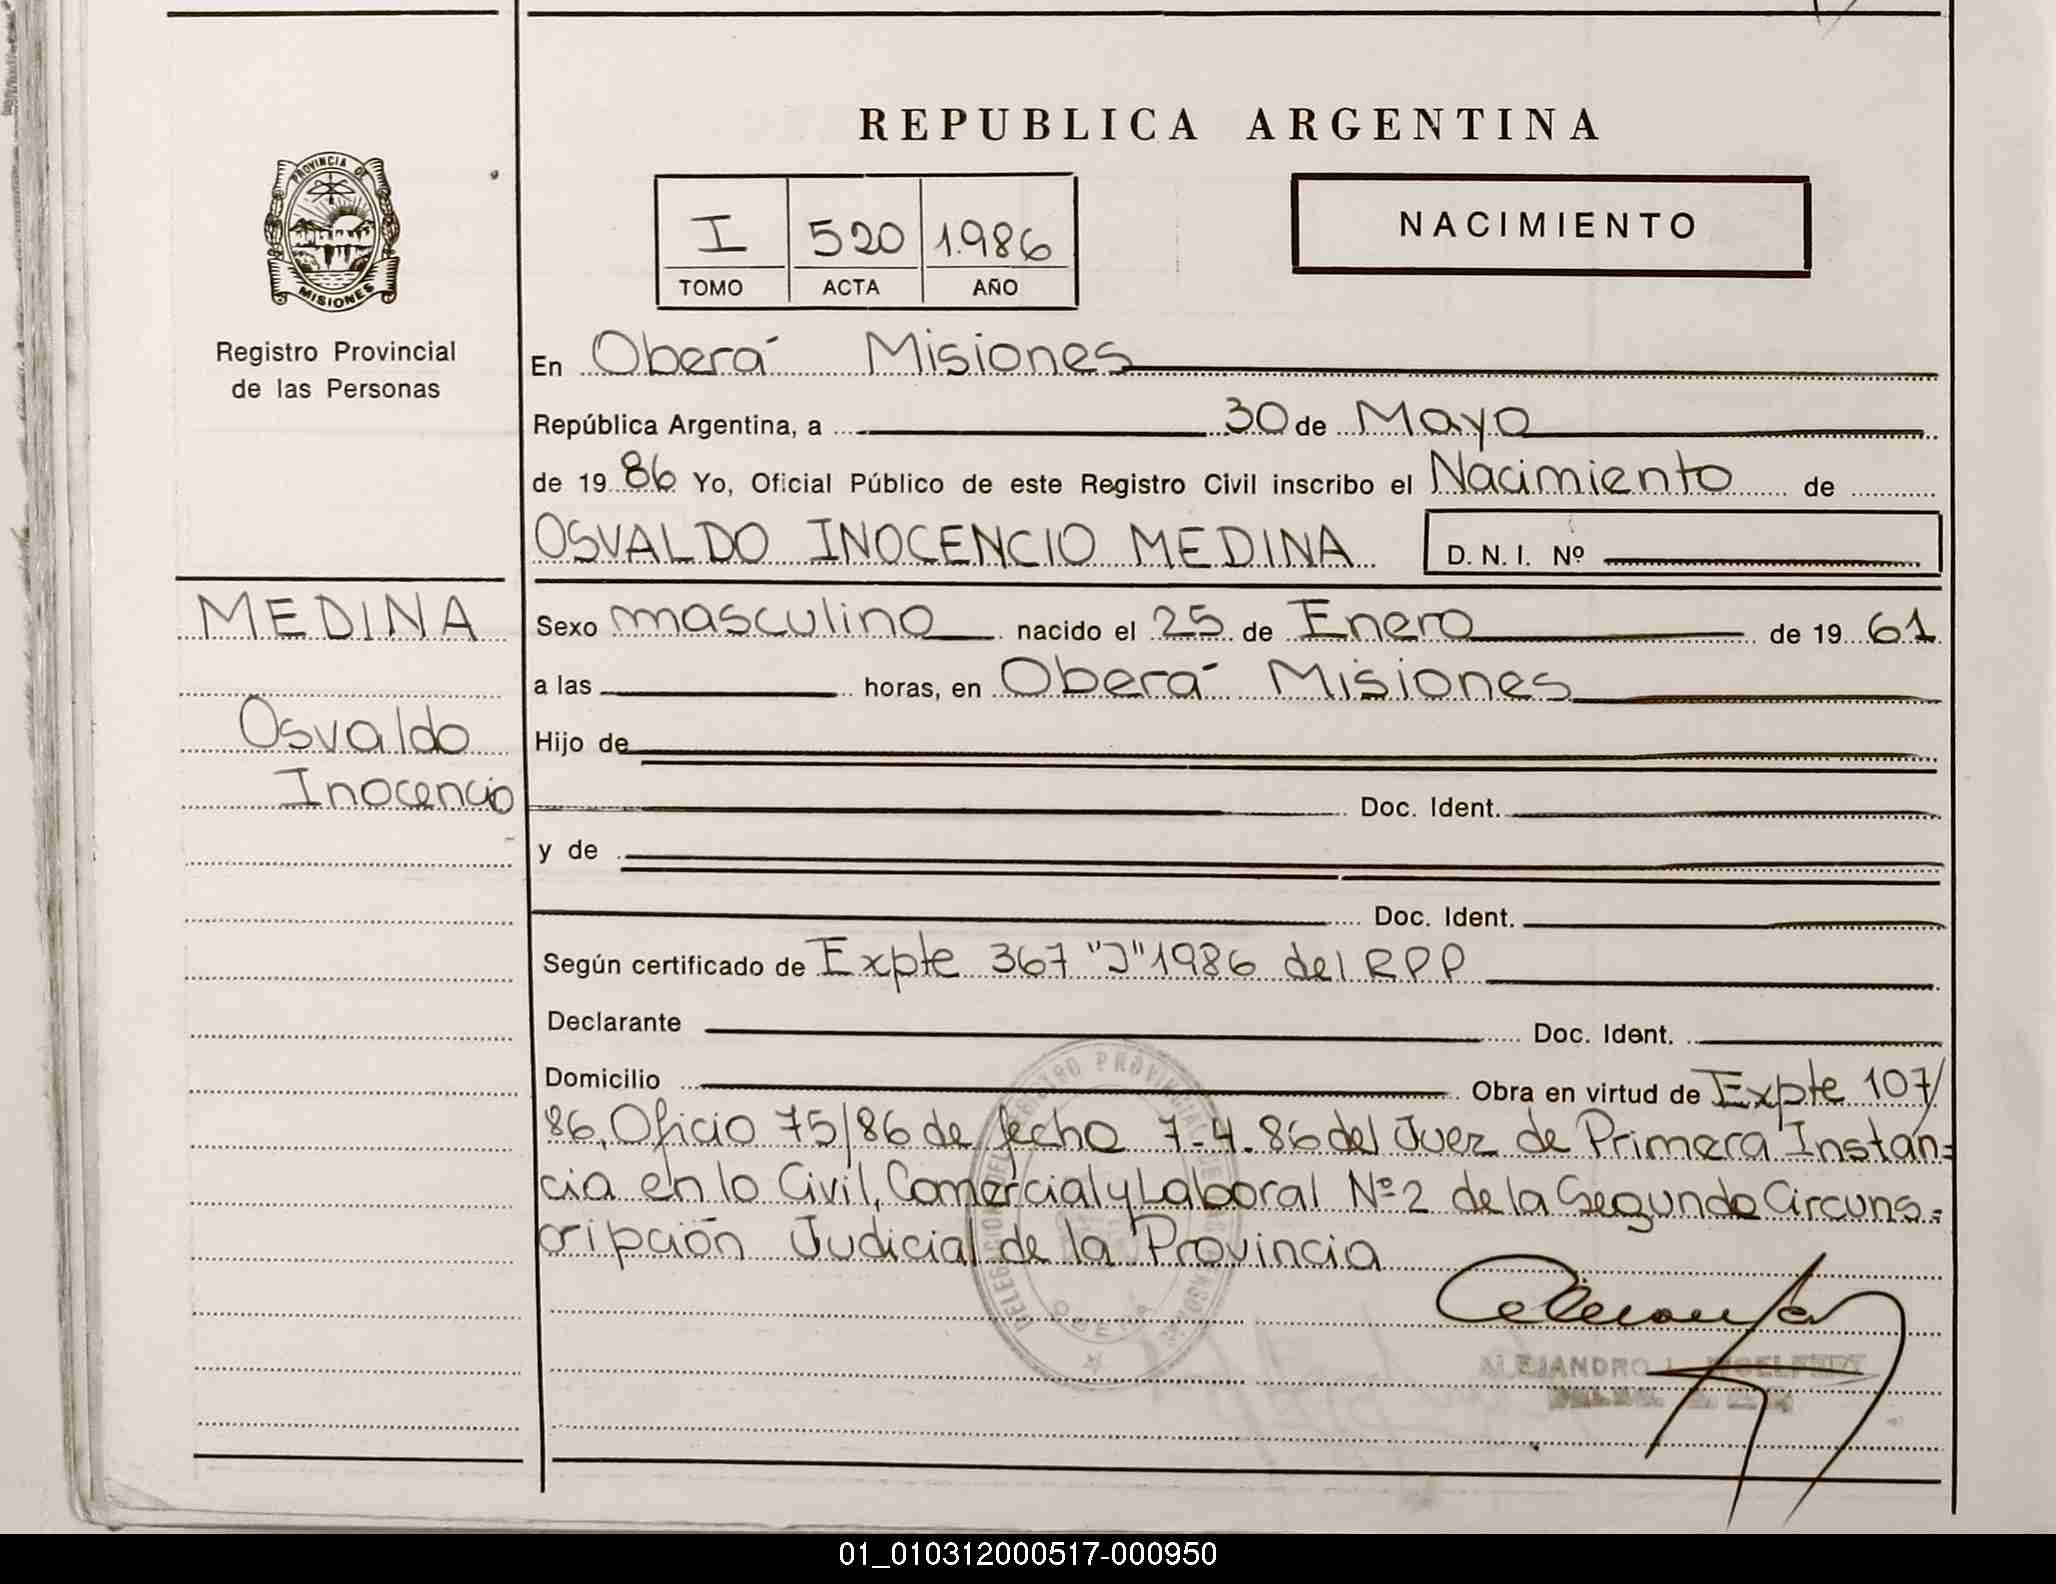 REPUBLICA ARGENTINA
PROVINCIA DE
MISIONES
Registro Provincial
de las Personas
I 520 1.986
TOMO ACTA AÑO
NACIMIENTO
En Oberá Misiones
República Argentina, a 30 de Mayo
de 19 86 Yo, Oficial Público de este Registro Civil inscribo el Nacimiento de
OSVALDO INOCENCIO MEDINA D. N. I. Nº
MEDINA
Osvaldo
Inocencio
Sexo masculino nacido el 25 de Enero de 19 61
a las horas, en Oberá Misiones
Hijo de
Doc. Ident.
y de
Doc. Ident.
Según certificado de Expte 367 "J" 1986 del RPP
Declarante Doc. Ident.
Domicilio Obra en virtud de Expte 107/
86, Oficio 75/86 de fecha 7-4-86 del Juez de Primera Instan=
cia en lo Civil, Comercial y Laboral Nº 2 de la Segunda Circuns=
cripción Judicial de la Provincia
OBERA
ALEJANDRO
01_010312000517-000950